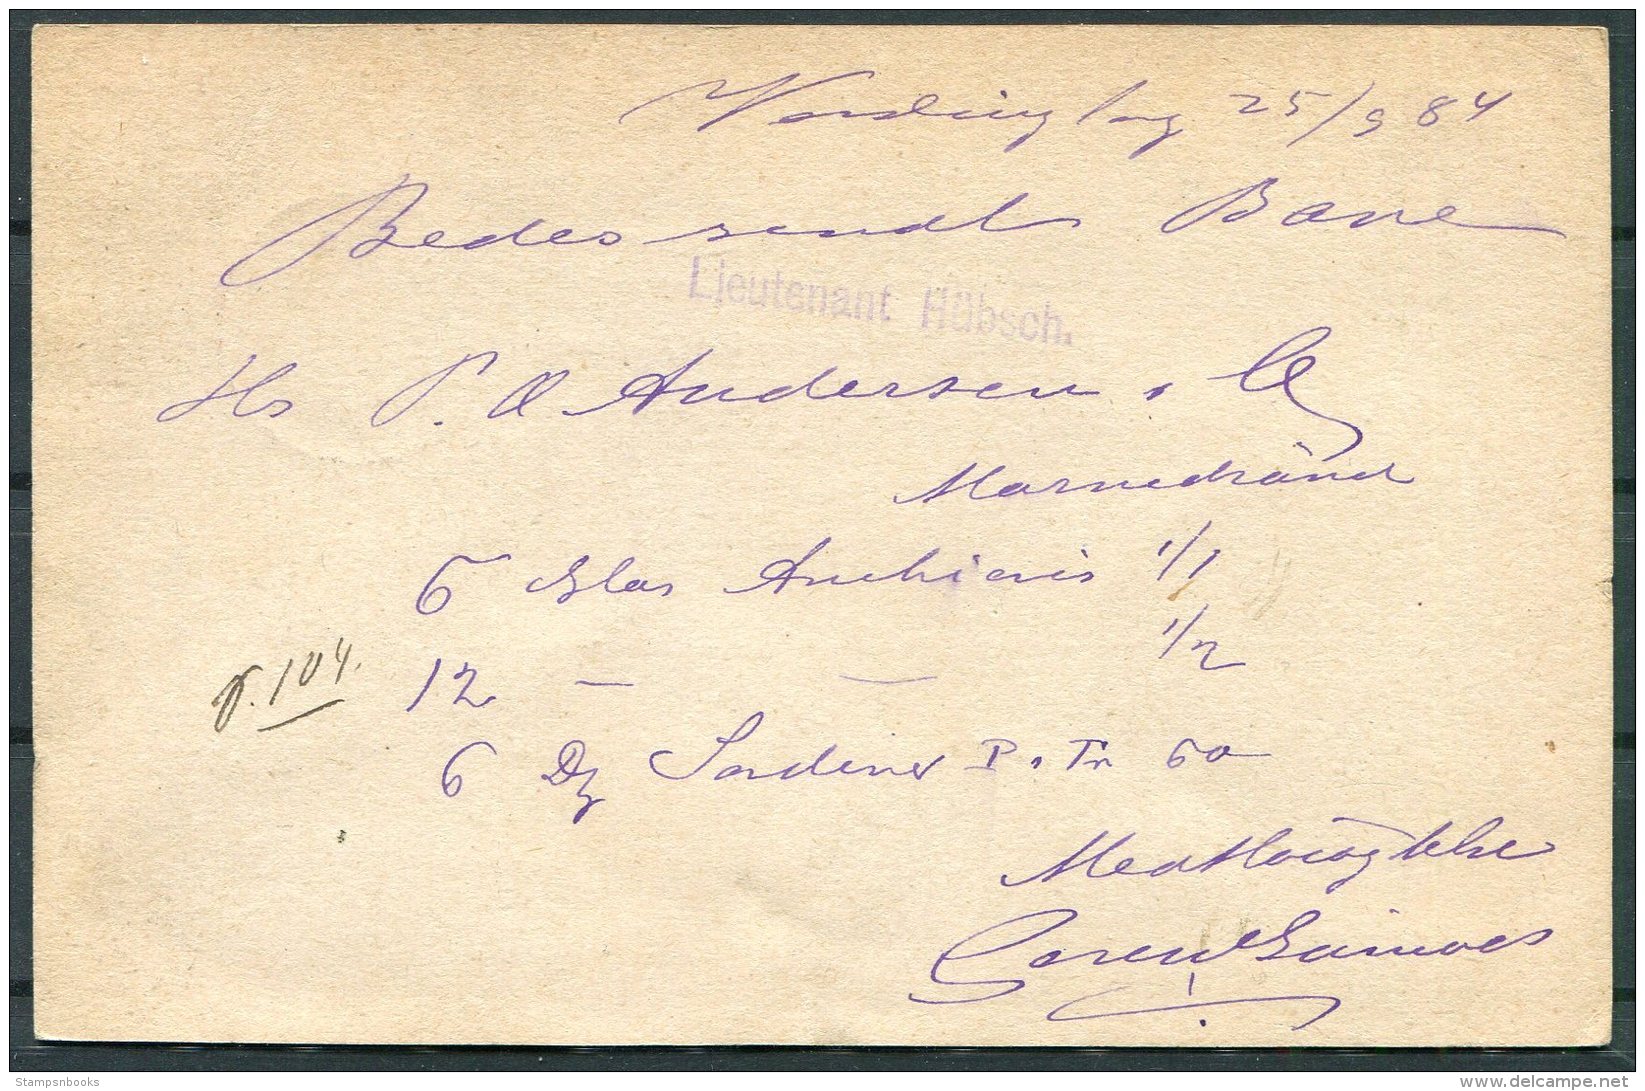 Vordingborg 25/9 84
Bedes sendt Bane
Lieutenant Hübsch.
Hr P. Andersen & Co
Masnedsund
6 Glas Anchiovis 1/1
12 — — 1/2
6 Dz Sardiner P. Tn 60
Med Høiagtelse
Søren
104.
Stampsnbooks
delcampe.net